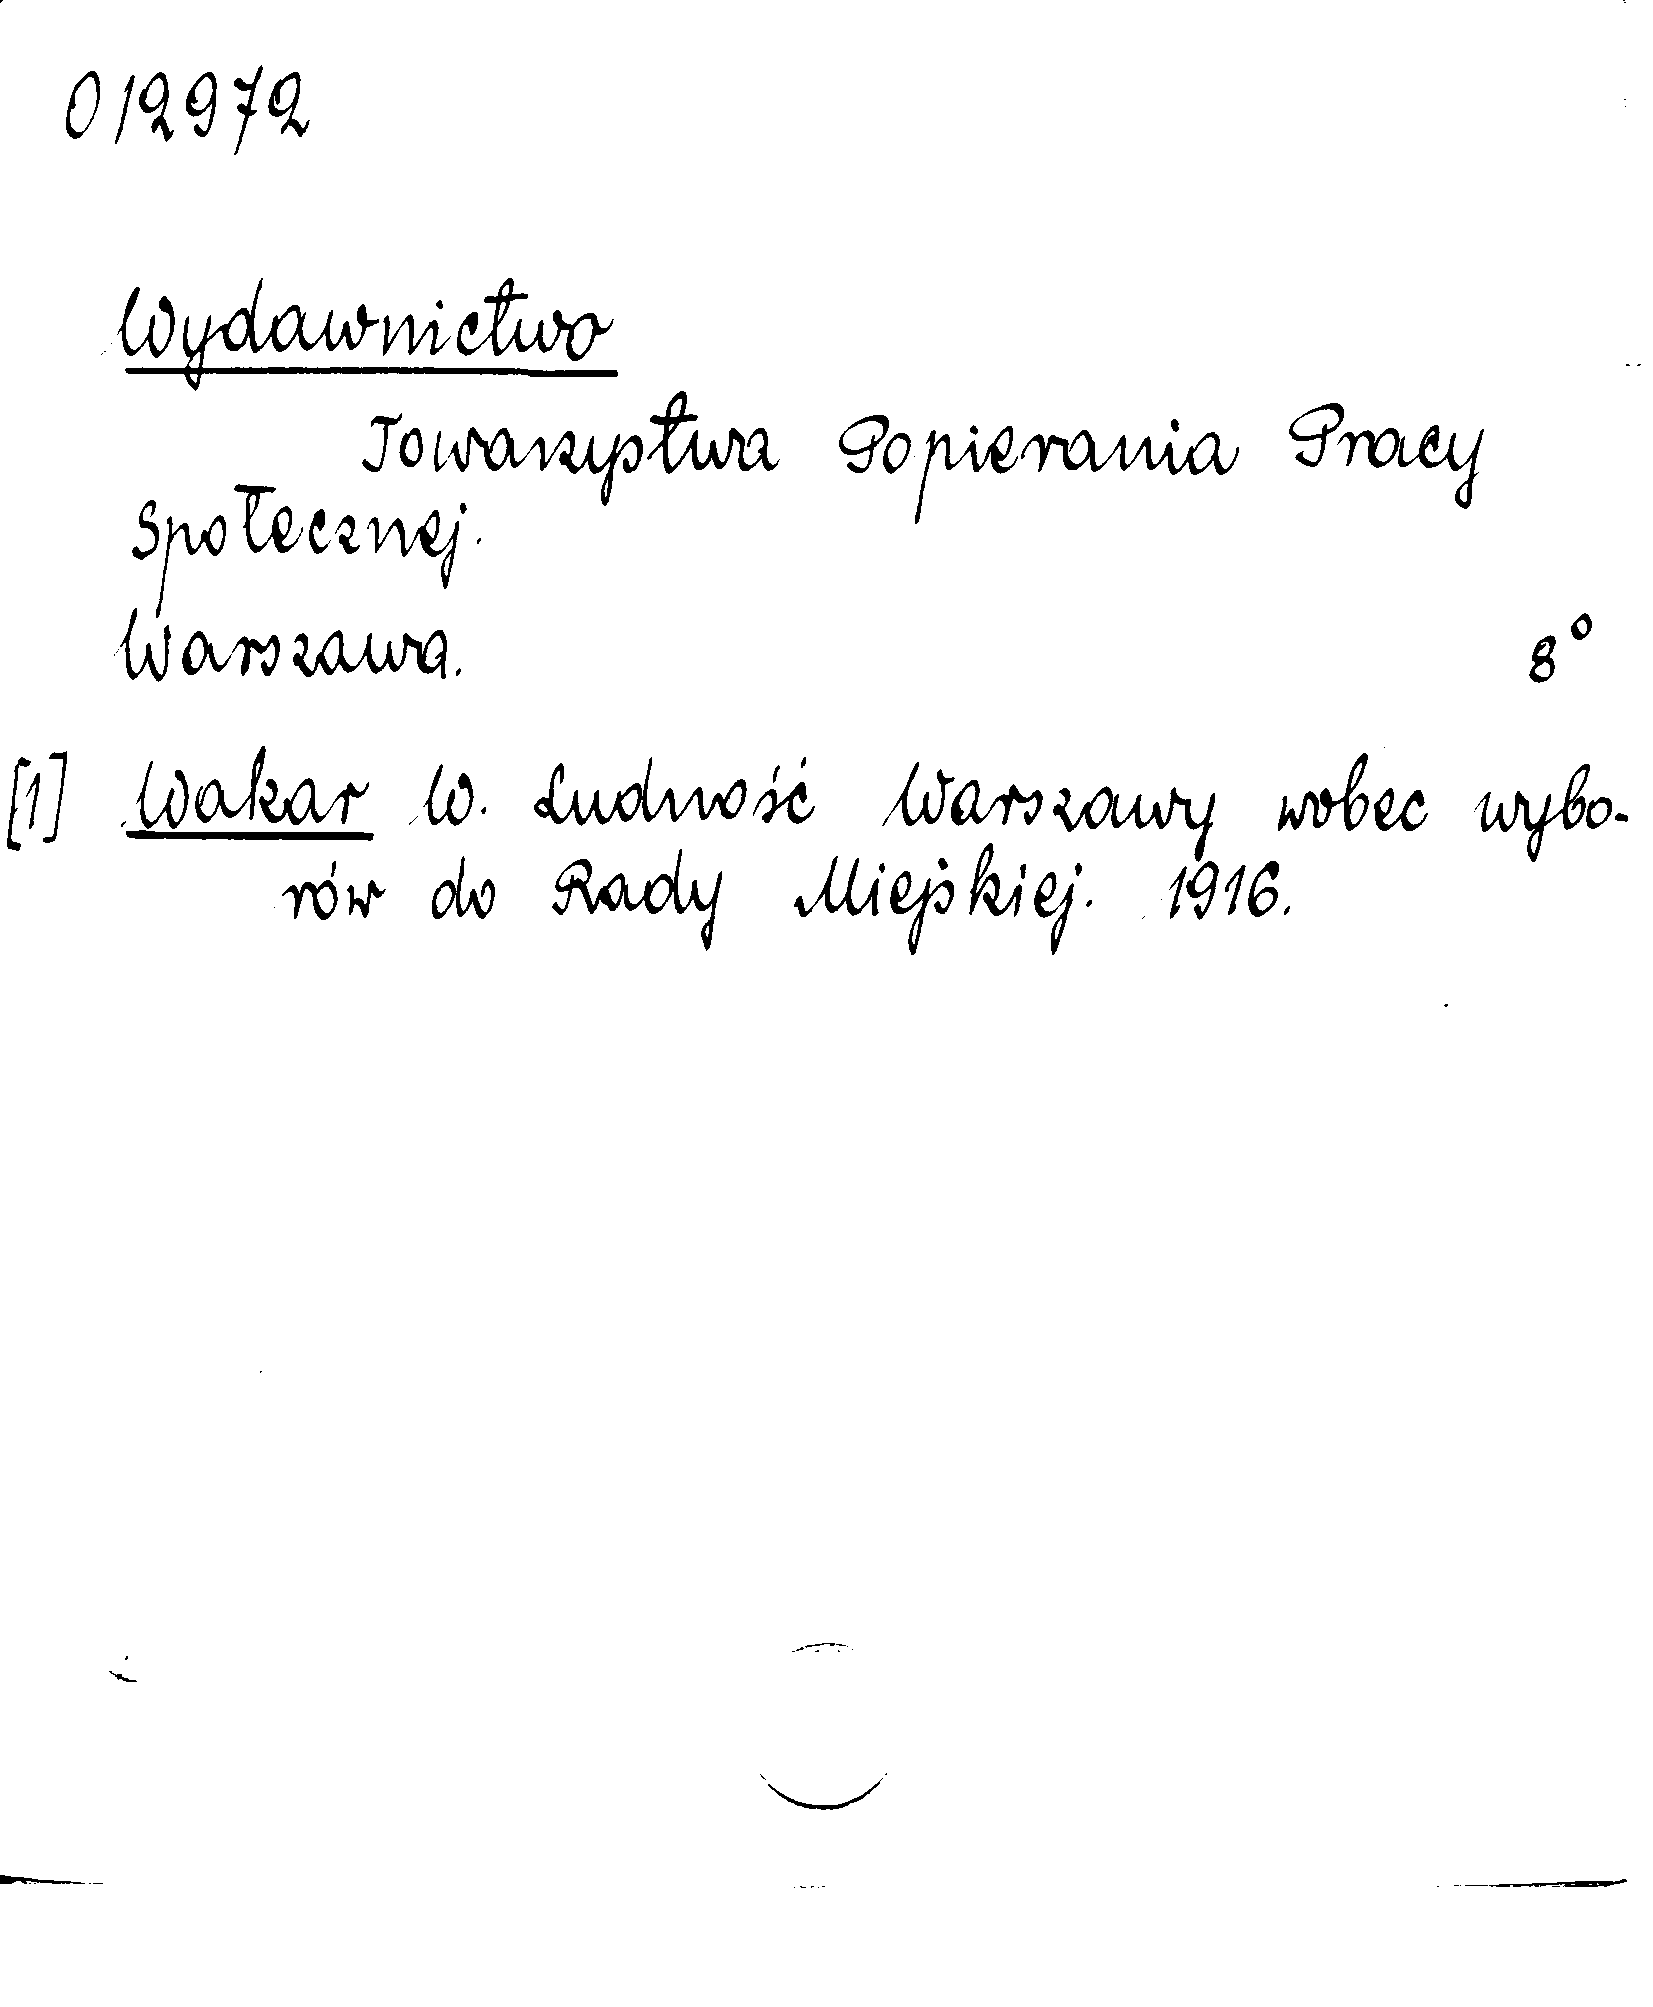 012972
Wydawnictwo
Towarzystwa Popierania Pracy
Społecznej.
Warszawa. 8°
[1] Wakar W. Ludność Warszawy wobec wybo-
rów do Rady Miejskiej. 1916.